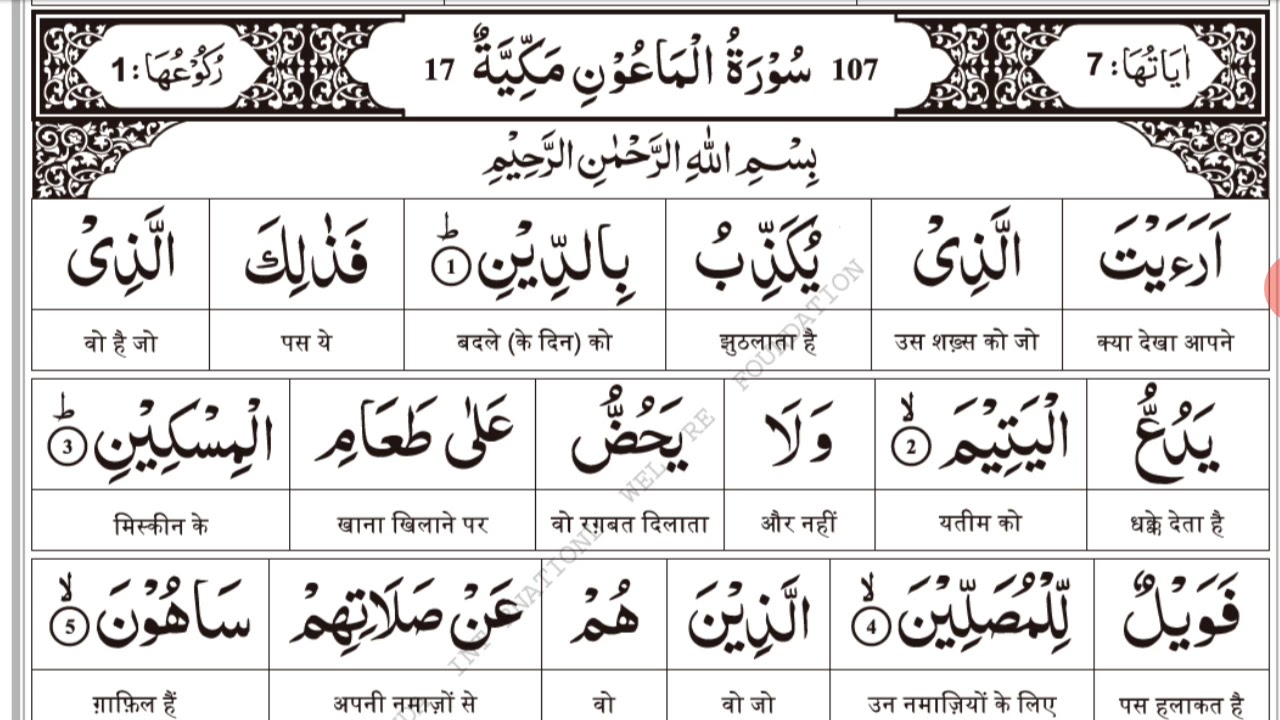 اٰيَاتُهَا: 7 107 سُوْرَةُ الْمَاعُوْنِ مَكِّيَّةٌ 17 رُكُوْعُهَا: 1
بِسْمِ اللهِ الرَّحْمٰنِ الرَّحِيْمِ
اَرَءَيْتَ الَّذِىْ يُكَذِّبُ بِالدِّيْنِ ؕ 1 فَذٰلِكَ الَّذِىْ
क्या देखा आपने उस शख़्स को जो झुठलाता है बदले (के दिन) को पस ये वो है जो
يَدُعُّ الْيَتِيْمَ ۙ 2 وَلَا يَحُضُّ عَلٰى طَعَامِ الْمِسْكِيْنِ ؕ 3
धक्के देता है यतीम को और नहीं वो रग़बत दिलाता खाना खिलाने पर मिस्कीन के
فَوَيْلٌ لِّلْمُصَلِّيْنَ ۙ 4 الَّذِيْنَ هُمْ عَنْ صَلَاتِهِمْ سَاهُوْنَ ۙ 5
पस हलाकत है उन नमाज़ियों के लिए वो जो वो अपनी नमाज़ों से ग़ाफ़िल हैं